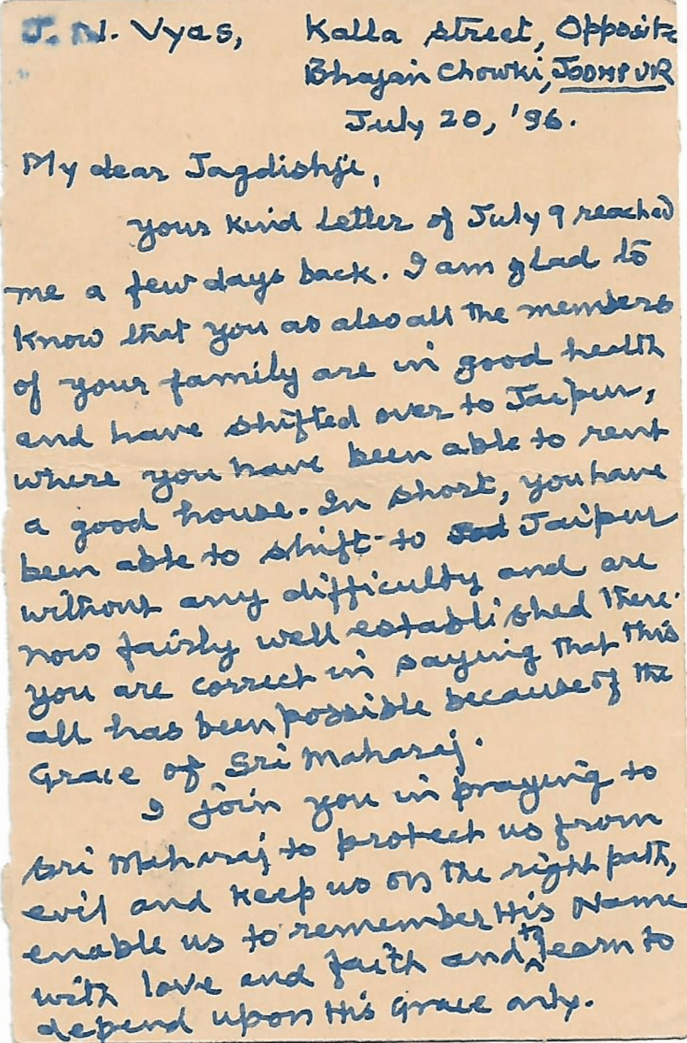 J. N. Vyas, Kalla Street, Opposite
Bhajan Chowki, JODHPUR
July 20, '96.
My dear Jagdishji,
Your kind letter of July 9 reached
me a few days back. I am glad to
know that you as also all the members
of your family are in good health
and have shifted over to Jaipur,
where you have been able to rent
a good house. In short, you have
been able to shift to Jaipur
without any difficulty and are
now fairly well established there.
You are correct in saying that this
all has been possible because of the
Grace of Sri Maharaj.
I join you in praying to
Sri Maharaj to protect us from
evil and keep us on the right path,
enable us to remember His Name
with love and faith and to learn to
depend upon His Grace only.